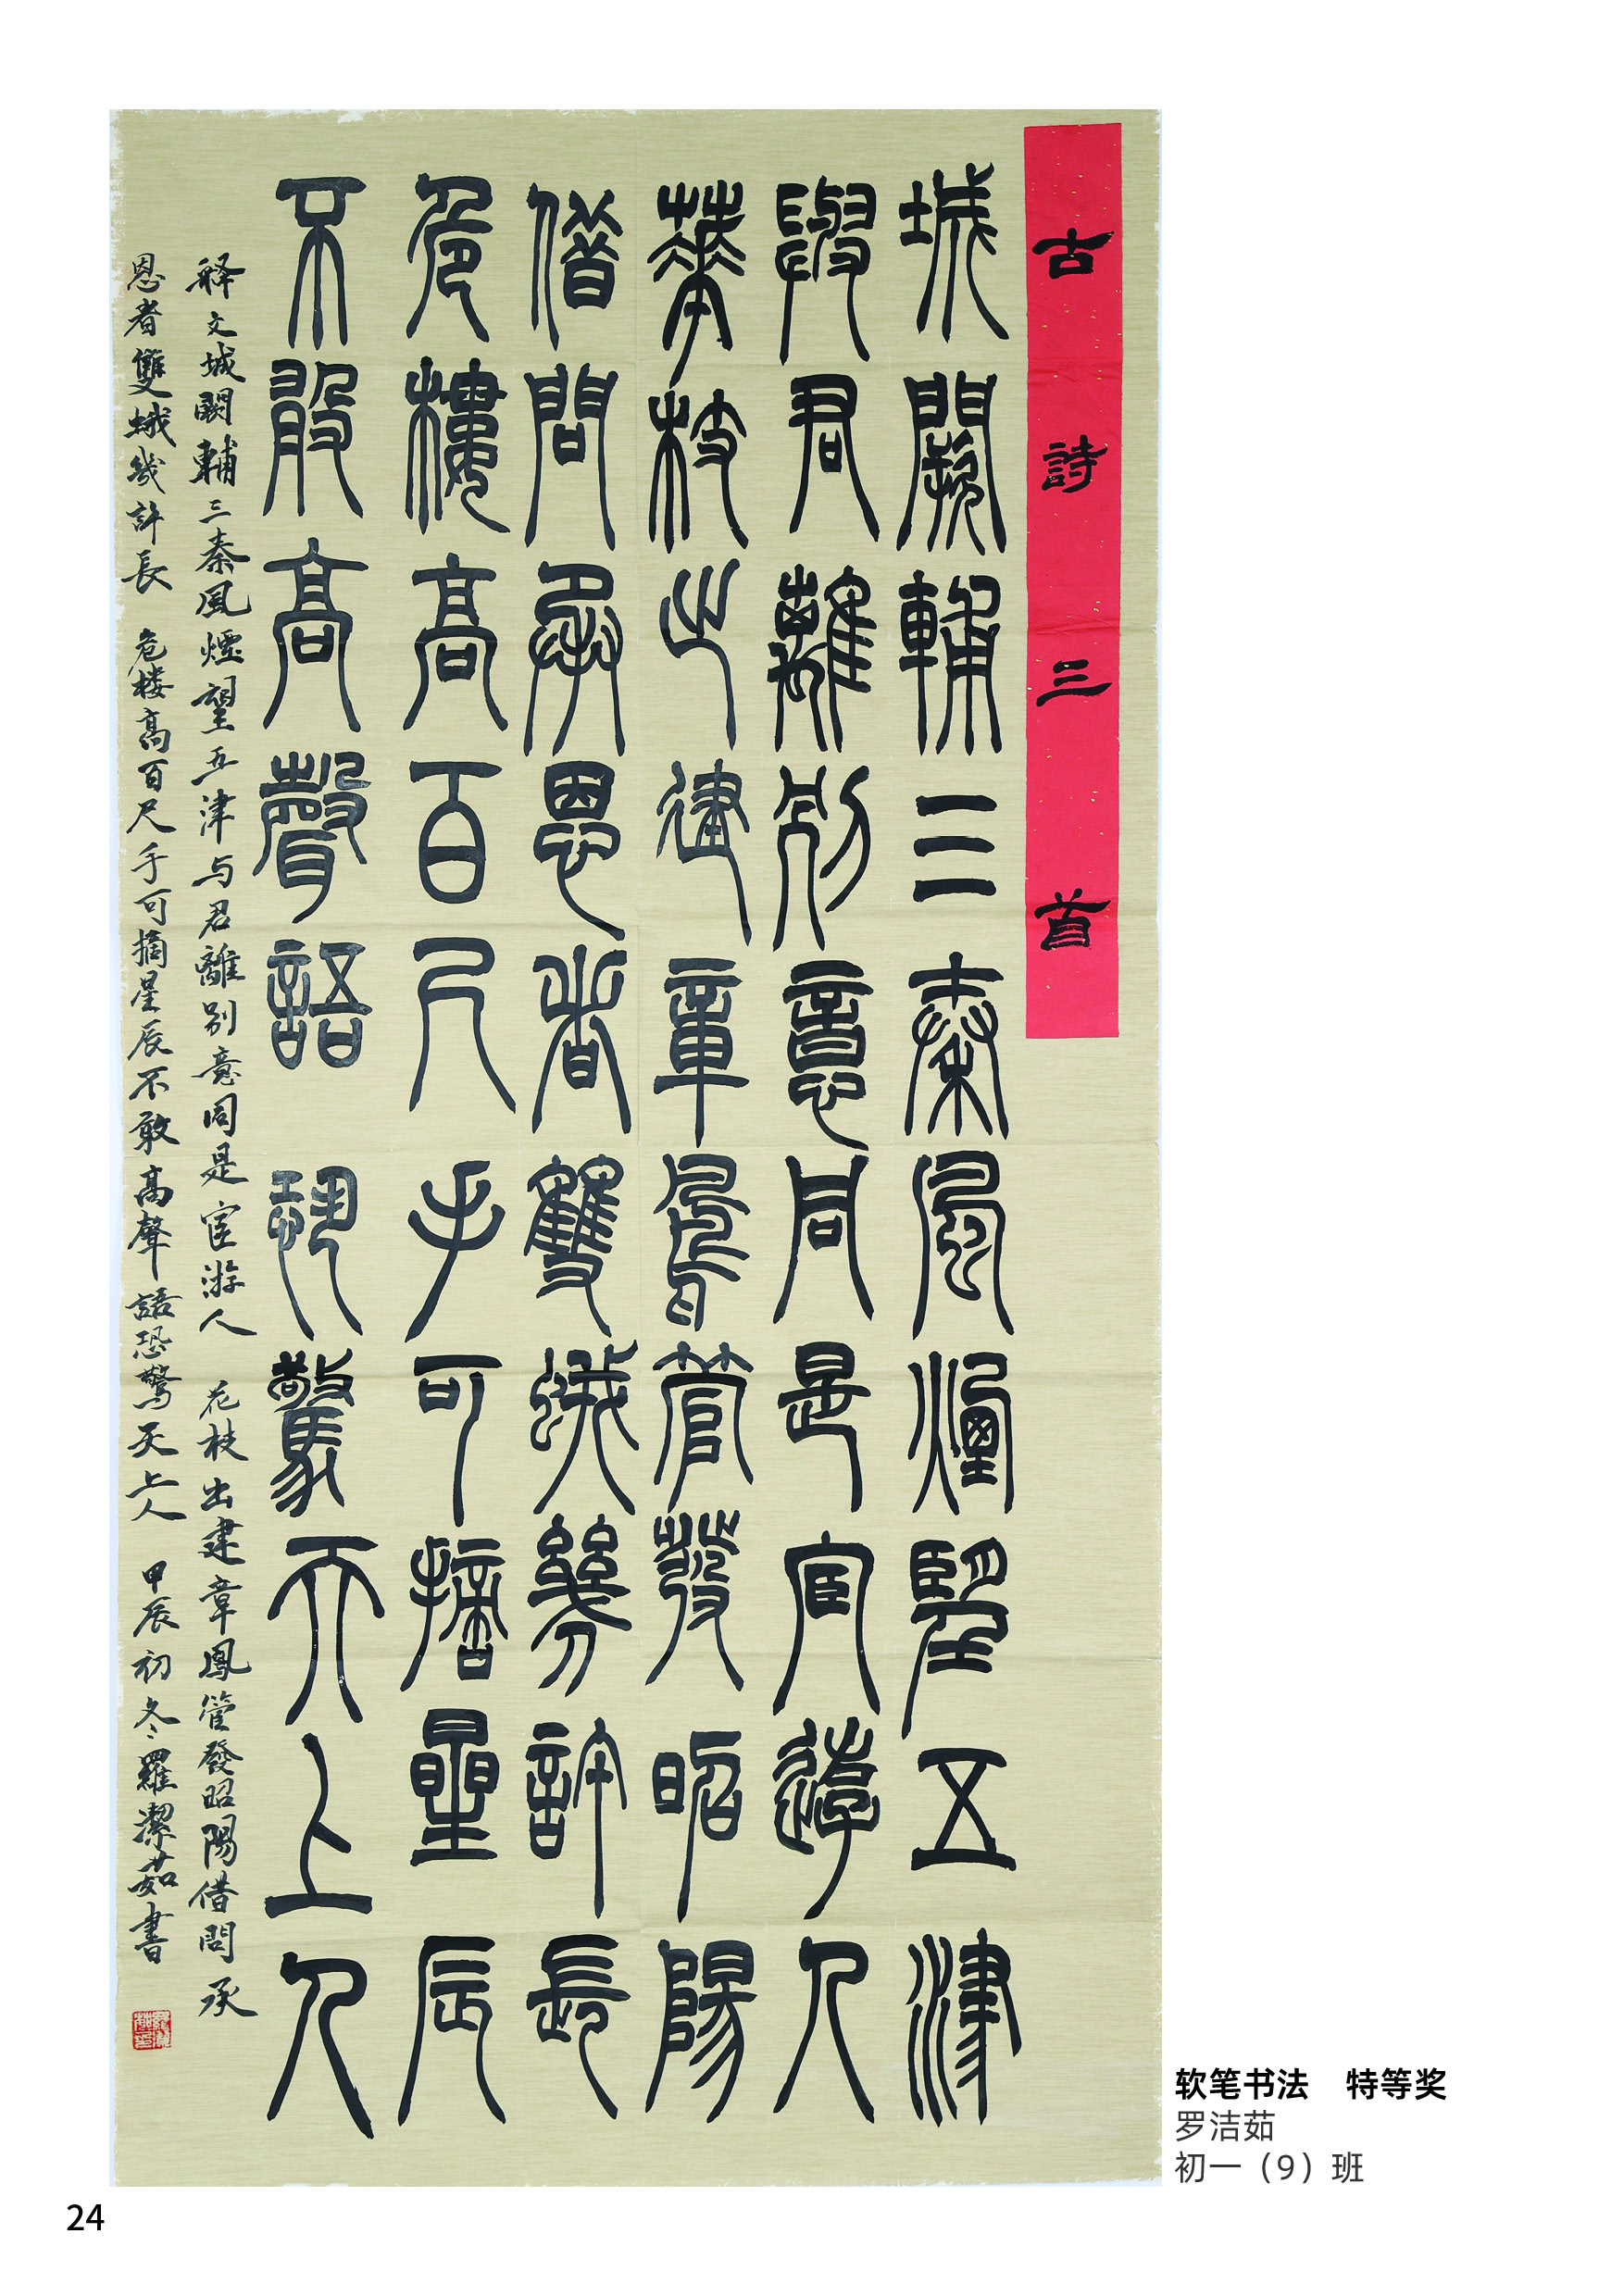 古詩三首
城闕輔三秦風煙望五津
與君離別意同是宦遊人
華枝出建章鳳管發昭陽
借問承恩者雙蛾幾許長
危樓高百尺手可摘星辰
不敢高聲語恐驚天上人
释文城闕輔三秦風煙望五津与君離别意同是宦游人 花枝出建章鳳管發昭陽借問承
恩者雙蛾幾許長 危楼高百尺手可摘星辰不敢高聲語恐驚天上人 甲辰初冬羅潔茹書
软笔书法 特等奖
罗洁茹
初一（9）班
24